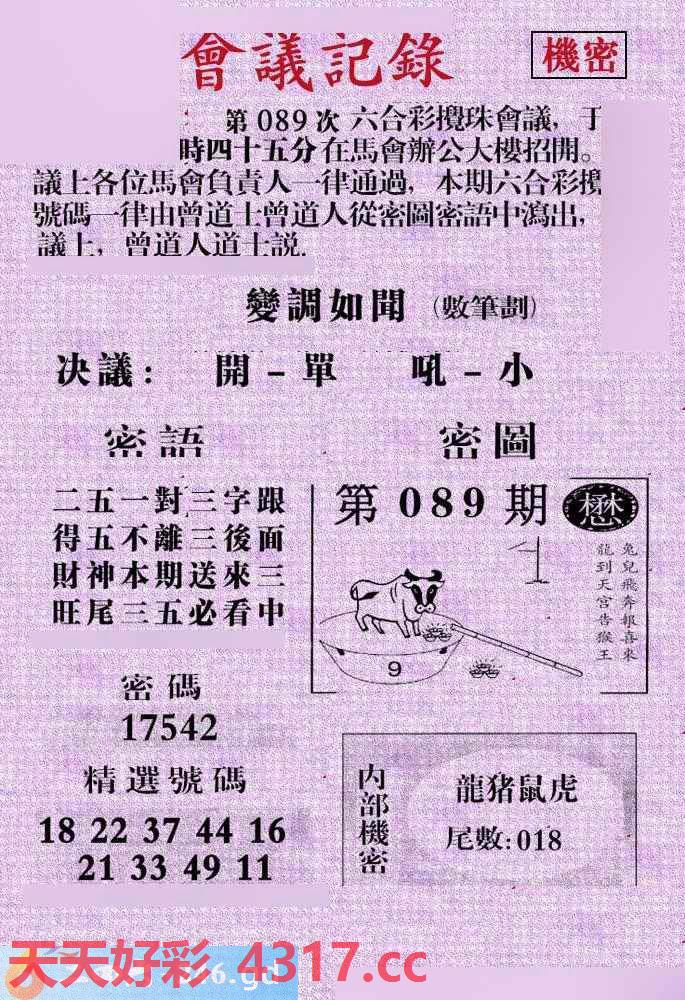 會議記錄
機密
第 089 次 六合彩攪珠會議，于
時四十五分在馬會辦公大樓招開。
議上各位馬會負責人一律通過，本期六合彩攪
號碼一律由曾道士曾道人從密圖密語中瀉出，
議上，曾道人道士説.
變調如聞（數筆劃）
决議： 開－單 吼－小
密語
二五一對三字跟
得五不離三後面
財神本期送來三
旺尾三五必看中
密圖
第089期
懋
兔兒飛奔報喜來
龍到天宮告猴王
9
密碼
17542
精選號碼
18 22 37 44 16
21 33 49 11
内部機密
龍猪鼠虎
尾數:018
天天好彩 4317.cc